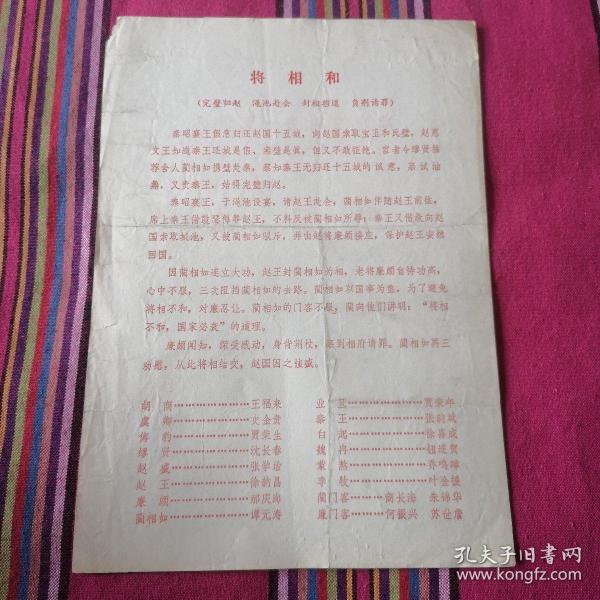 将相和
(完璧归赵 渑池赴会 封相挡道 负荆请罪)
秦昭襄王假意归还赵国十五城,向赵国索取宝玉和氏璧,赵惠
文王知道秦王还城是假,索璧是真,但又不敢拒绝。宦者令缪贤推
荐舍人蔺相如携璧赴秦,察知秦王无归还十五城的诚意,居试油
鼎,又责秦王,始得完璧归赵。
秦昭襄王,于渑池设宴,请赵王赴会,蔺相如伴随赵王前往,
席上秦王借鼓瑟侮辱赵王,不料反被蔺相如所辱;秦王又借献向赵
国索取城池,又被蔺相如驳斥,并由赵将廉颇接应,保护赵王安然
回国。
因蔺相如连立大功,赵王封蔺相如为相,老将廉颇自恃功高,
心中不服,三次阻挡蔺相如的去路。蔺相如以国事为重,为了避免
将相不和,对廉忍让。蔺相如的门客不服,蔺向他们讲明:“将相
不和,国家必衰”的道理。
廉颇闻知,深受感动,身背荆杖,来到相府请罪。蔺相如再三
劝慰,从此将相结交,赵国因之强盛。
胡 伤…………………王福来
虞 卿…………………史金贵
傅 豹…………………贾荣生
缪 贤…………………沈长春
赵 盛…………………张学治
赵 王…………………徐韵昌
廉 颇…………………郝庆海
蔺相如…………………谭元寿
业 …………………贾荣年
秦 王…………………张韵斌
白 起…………………徐喜成
魏 冉…………………钮道贺
蒙 骜…………………乔鸣
李 牧…………………叶金援
蔺门客………商长海 朱锦华
廉门客………何振兴 苏世詹
孔夫子旧书网
www.kongfz.com